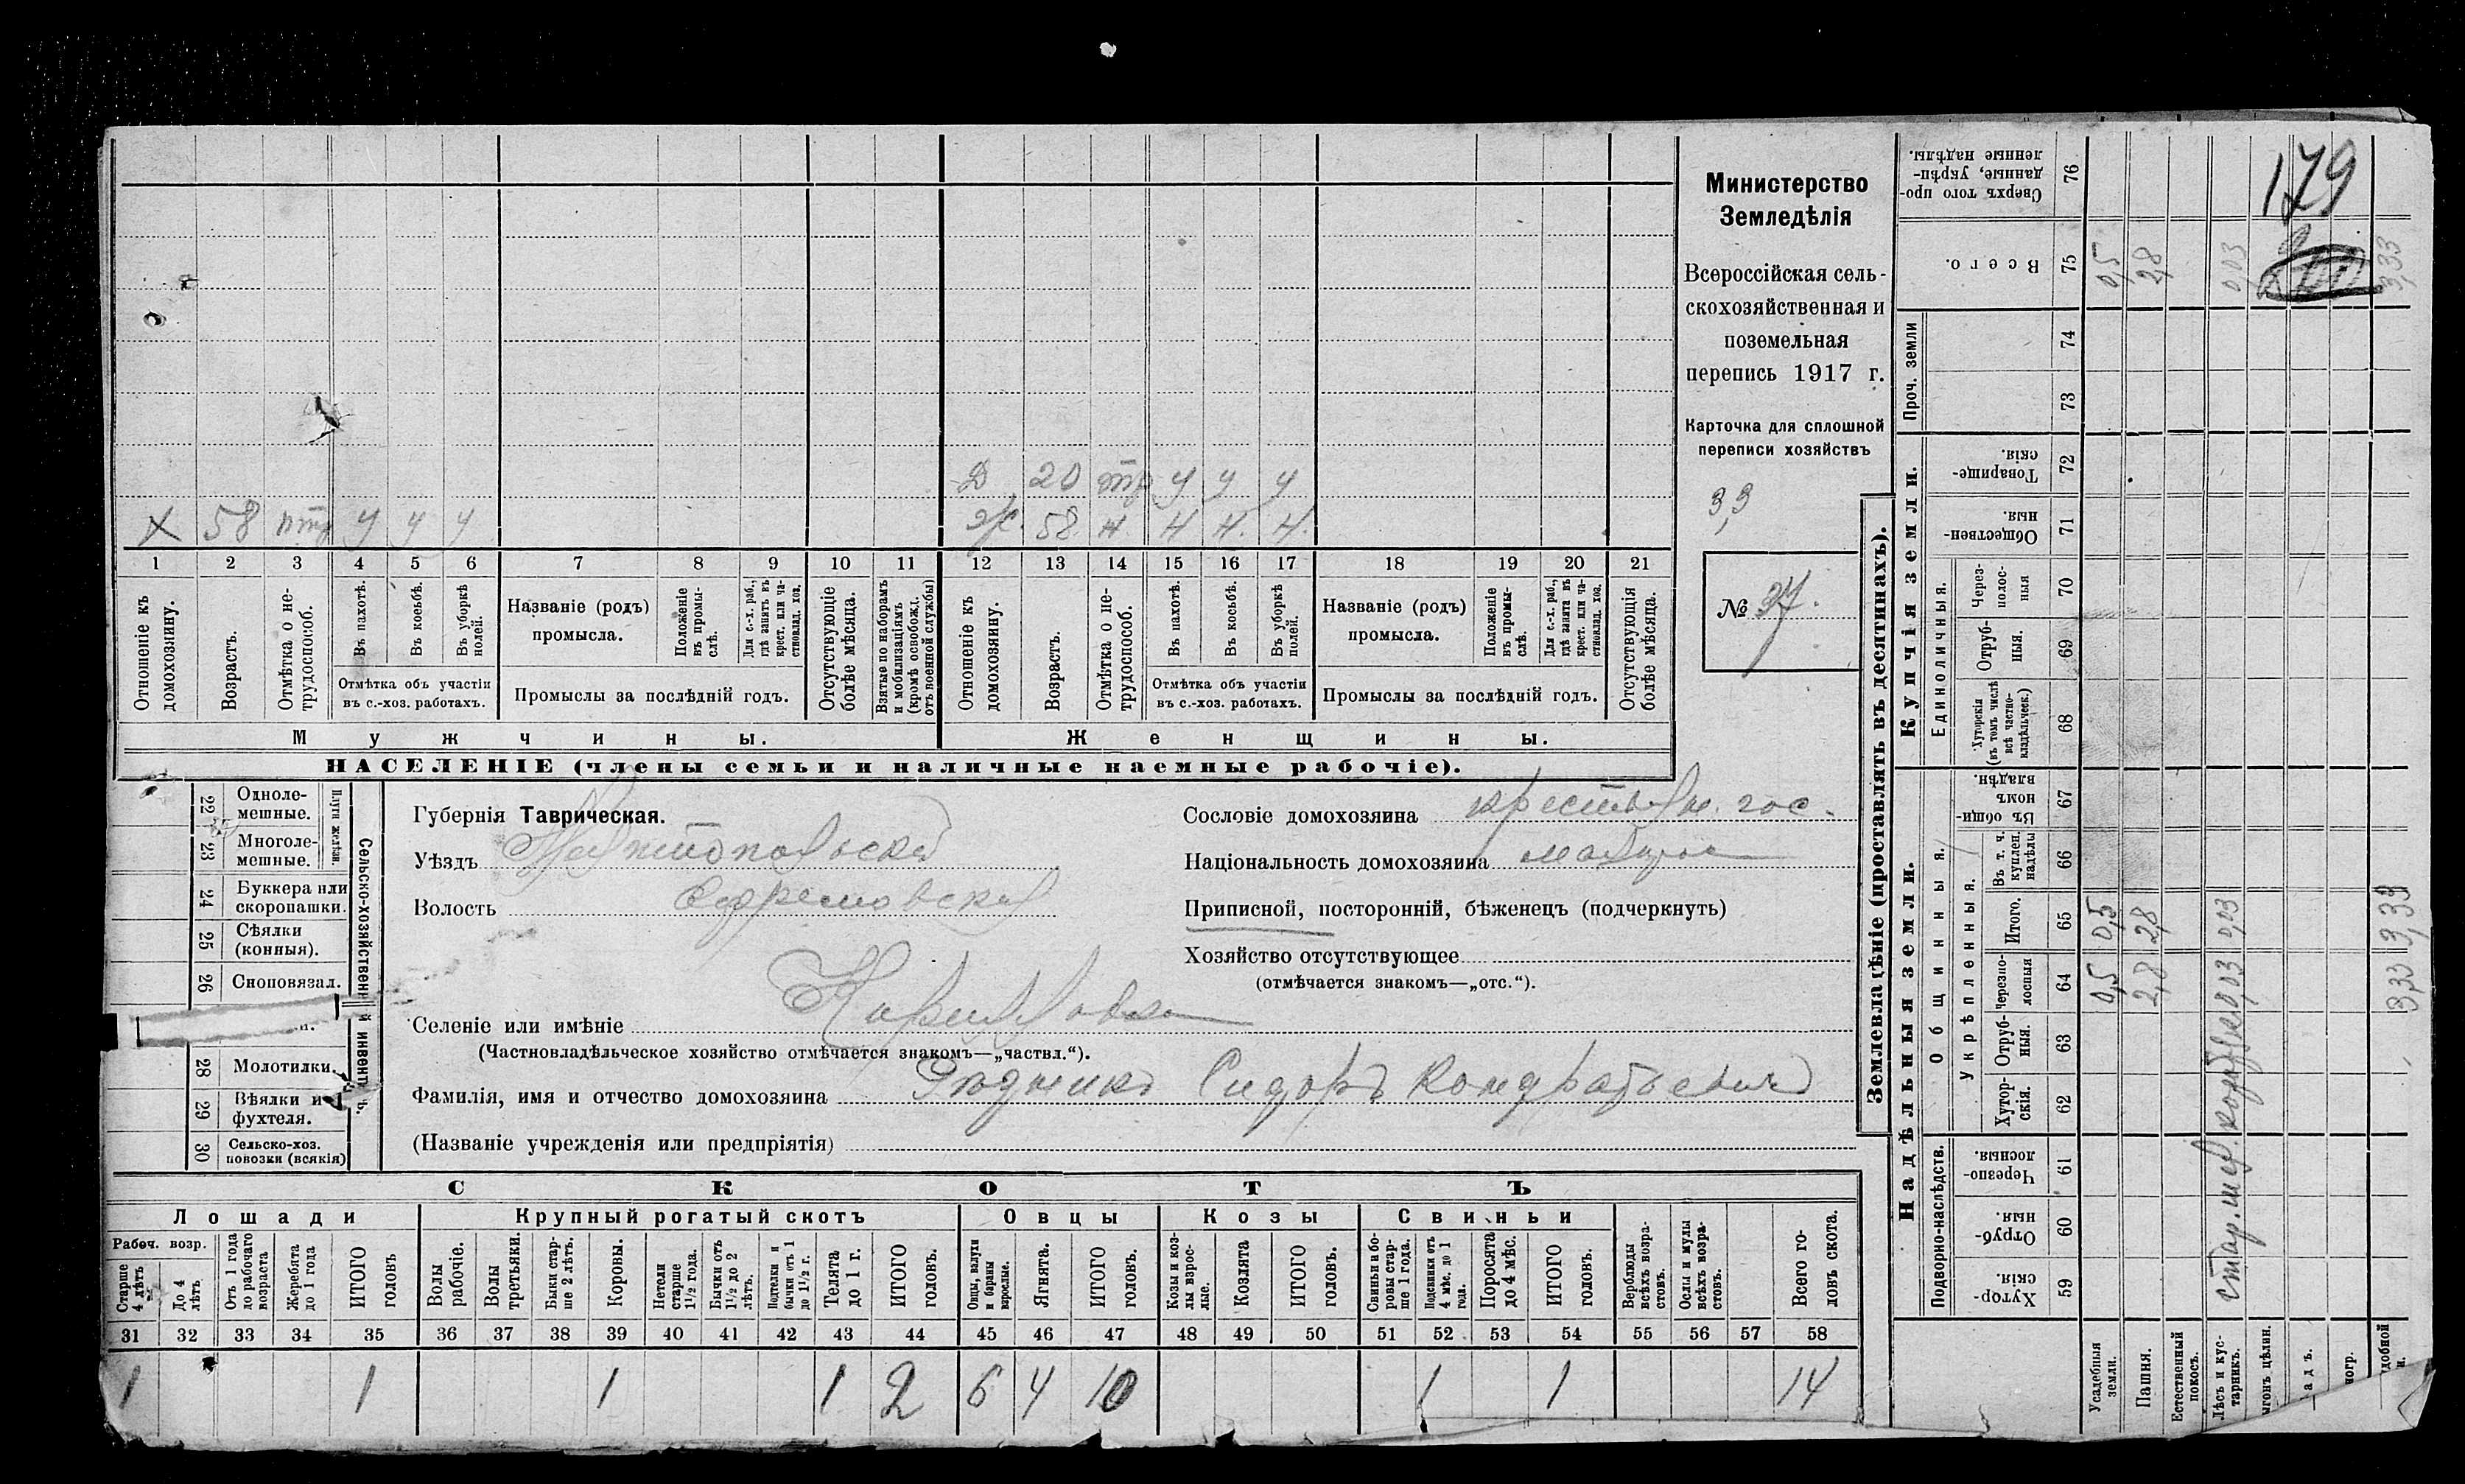 179
Министерство
Земледѣлія
Всероссійская сель-
скохозяйственная и
поземельная
перепись 1917 г.
Карточка для сплошной
переписи хозяйствъ
3,3
№ 37.
Д 20 тр у у у
X 58 птр у у у
ж. 58. н. н н. н.
1 2 3 4 5 6 7 8 9 10 11 12 13 14 15 16 17 18 19 20 21
Отношеніе къ домохозяину.
Возрастъ.
Отмѣтка о не-трудоспособ.
Въ пахотѣ.
Въ косьбѣ.
Въ уборкѣ полей.
Отмѣтка объ участіи
въ с.-хоз. работахъ.
Названіе (родъ)
промысла.
Положеніе въ промы-слѣ.
Для с.-х. раб., гдѣ занятъ въ крест. или ча-стновлад. хоз.
Промыслы за послѣдній годъ.
Отсутствующіе болѣе мѣсяца.
Взятые по наборамъ и мобилизаціямъ (кромѣ освобожд. отъ военной службы)
Отношеніе къ домохозяину.
Возрастъ.
Отмѣтка о не-трудоспособ.
Въ пахотѣ.
Въ косьбѣ.
Въ уборкѣ полей.
Отмѣтка объ участіи
въ с.-хоз. работахъ.
Названіе (родъ)
промысла.
Положеніе въ промы-слѣ.
Для с.-х. раб., гдѣ занята въ крест. или ча-стновлад. хоз.
Промыслы за послѣдній годъ.
Отсутствующія болѣе мѣсяца.
Мужчины.
Женщины.
НАСЕЛЕНІЕ (члены семьи и наличные наемные рабочіе).
22 Одноле-мешные.
23 Многоле-мешные.
Плуги желѣзн.
24 Буккера или скоропашки.
25 Сѣялки (конныя).
26 Сноповязал.
28 Молотилки.
29 Вѣялки и фухтеля.
30 Сельско-хоз. повозки (всякія)
Сельско-хозяйственн
й инвент
ь.
Губернія Таврическая.
Уѣздъ Мелитопольскій
Волость Ефремовская
Селеніе или имѣніе Кирилловка
(Частновладѣльческое хозяйство отмѣчается знакомъ—„частвл.“).
Фамилія, имя и отчество домохозяина Сидоръ Кондратьевичъ
(Названіе учрежденія или предпріятія)
Сословіе домохозяина крестьян. гос.
Національность домохозяина малорос
Приписной, посторонній, бѣженецъ (подчеркнуть)
Хозяйство отсутствующее
(отмѣчается знакомъ—„отс.“).
СКОТЪ
Лошади
Крупный рогатый скотъ
Овцы
Козы
Свиньи
Рабоч. возр.
Старше 4 лѣтъ
До 4 лѣтъ
Отъ 1 года до рабочаго возраста
Жеребята до 1 года
ИТОГО головъ
Волы рабочіе.
Волы третьяки.
Быки стар-ше 2 лѣтъ.
Коровы.
Нетели старше 1½ года.
Бычки отъ 1½ до 2 лѣтъ.
Подтелки и бычки отъ 1 до 1½ г.
Телята до 1 г.
ИТОГО головъ.
Овцы, валухи и бараны взрослые.
Ягнята.
ИТОГО головъ.
Козы и коз-лы взрос-лые.
Козлята
ИТОГО головъ.
Свиньи и бо-ровы стар-ше 1 года.
Подсвинки отъ 4 мѣс. до 1 года.
Поросята до 4 мѣс.
ИТОГО головъ.
Верблюды всѣхъ возра-стовъ.
Ослы и мулы всѣхъ возра-стовъ.
Всего го-ловъ скота.
31 32 33 34 35 36 37 38 39 40 41 42 43 44 45 46 47 48 49 50 51 52 53 54 55 56 57 58
1 1 1 1 2 6 4 10 1 1 14
Землевладѣніе (проставлять въ десятинахъ).
Надѣльныя земли.
Купчія земли.
Проч. земли
Подворно-наслѣдств.
Общинныя.
Укрѣпленныя.
Единоличныя.
Сверхъ того про-данные, укрѣп-ленные надѣлы. 76
Всего. 75 0,5 2,8 0,03 3,33
74
73
Товарище-скія. 72
Обществен-ныя. 71
Через-полос-ныя 70
Отруб-ныя. 69
Хуторскія (въ томъ числѣ всѣ частно-владѣльческ.) 68
Въ общин-номъ владѣн. 67
Въ т. ч. куплен. надѣлы 66
Итого. 65 0,5 2,8 0,03 3,33
Черезпо-лосныя 64 0,5 2,8 0,03 3,33
Отруб-ныя. 63
Хутор-скія. 62
Черезпо-лосныя. 61
Отруб-ныя. 60
Хутор-скія. 59
Усадебныя земли.
Пашня.
Естественный покосъ.
Лѣсъ и кус-тарникъ.
ыгонъ цѣлин.
адъ.
ногр.
добной
и.